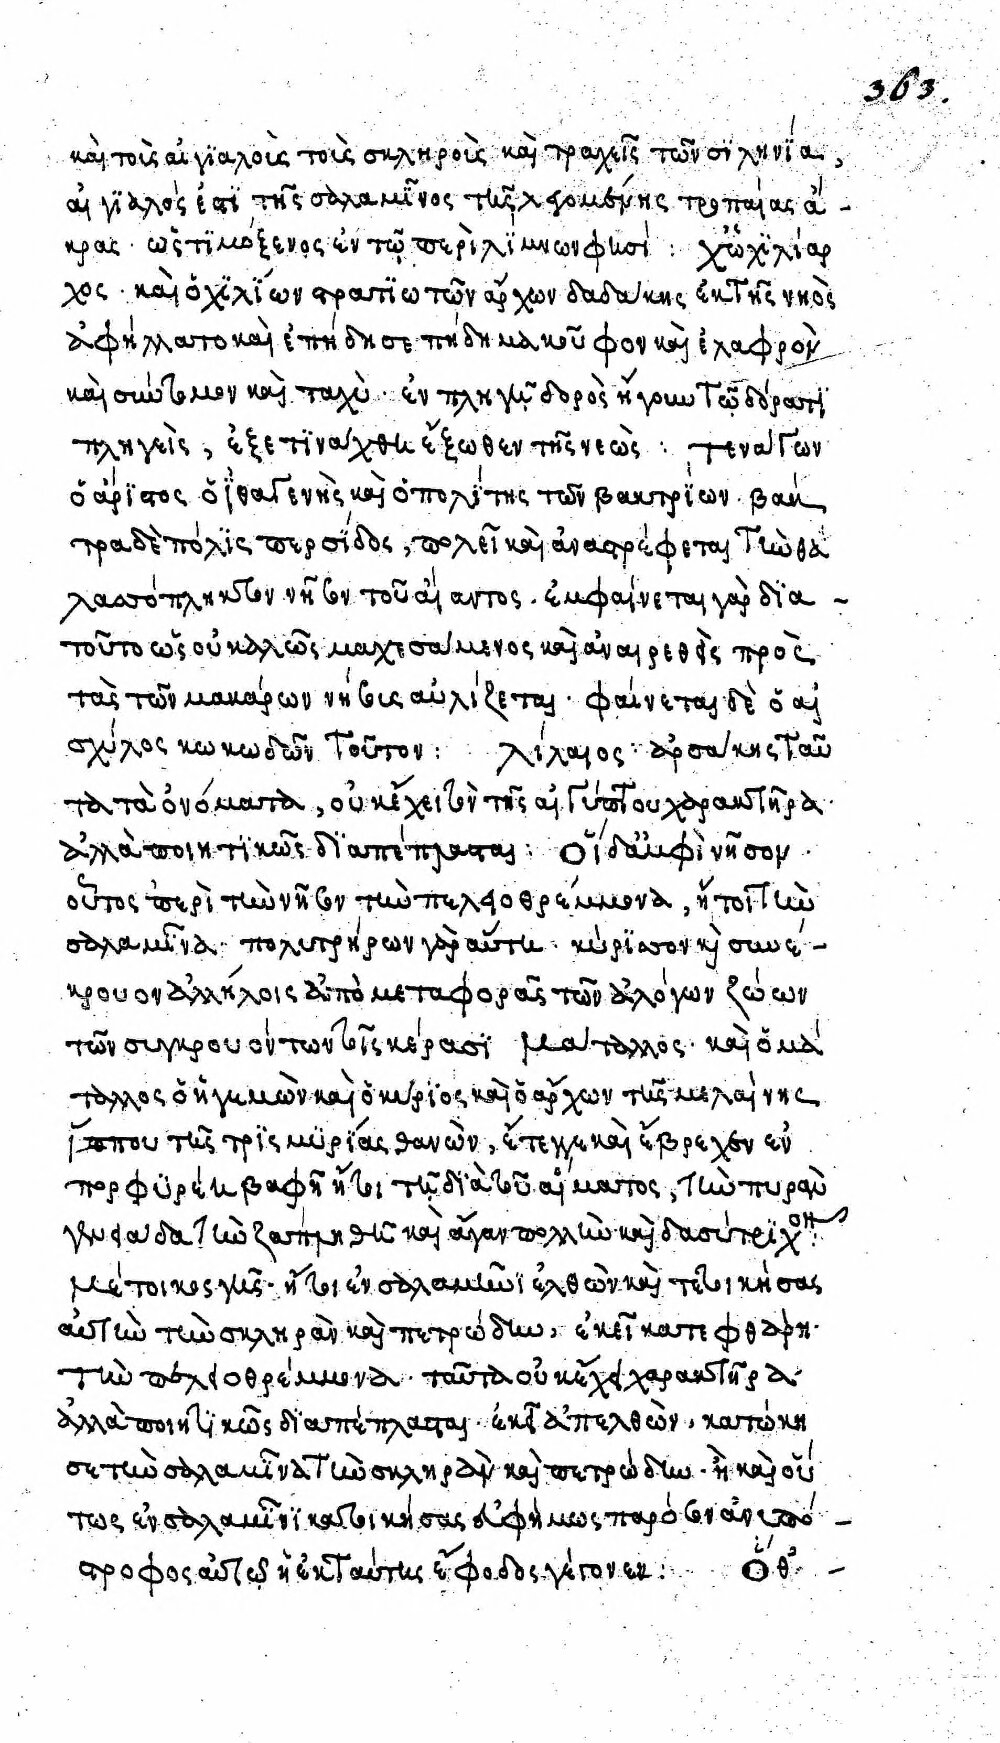 363.
καὶ τοῖς αἰγϊαλοῖς τοῖς σκληροῖς καὶ τραχεῖς τῶν σϊληνϊά,
αἰγϊαλός ἐπὶ τῆς σαλαμῖνος τῆς λεγομένης τροπαίας ἄ-
κρας. ὥς τϊμόξενος ἐν τῷ περὶ λϊμνων φησί: χὠ χϊλίαρ
χος. καὶ ὁ χϊλΐων στρατϊωτῶν ἄρχων δαδάκης ἐκ τῆς νηὸς
ἀφήλλατο καὶ ἐπήδησε πήδημα κοῦφον καὶ ἐλαφρὸν
καὶ σύντομον καὶ ταχὺ. ἐν πληγῇ δορὸς ἤγουν τῷ δόρατϊ
πληγεὶς, ἐξετϊνάχθη ἔξωθεν τῆς νεὼς: τενάγων
ὁ ἄρϊστος ὁ ἰ̈θαγενὴς καὶ ὁ πολΐτης τῶν βακτρΐων. βάκ
τρα δὲ πόλϊς περσΐδος, πολεῖ καὶ ἀναστρέφεται τὴν θα
λασσόπληκτον νῆσον τοῦ αἴαντος. ἐμφαίνεται γὰρ δϊα-
τοῦτο ὡς οὐ καλῶς μαχεσάμενος καὶ ἀναιρεθεὶς πρὸς
τὰς τῶν μακάρων νήσους αὐλίζεται. φαίνεται δὲ ὁ αἰ
σχύλος κωμωδῶν τοῦτον: λίλαιος. ἀρσάκης ταῦ
τα τὰ ὀνόματα, οὐκ ἔχει τὸν τῆς αἰγύπτου χαρακτῆρα.
ἀλλὰ ποιητϊκῶς δϊαπέπλασται: οἵ δ' ἀμφὶ νῆσον.
οὗτος περὶ τὴν νῆσον τὴν πελειοθρέμμονα, ἤτοι τὴν
σαλαμῖνα. πολυτρήρων γὰρ αὕτη. κύρϊσσον καὶ συνέ-
κρουον ἀλλήλοις ἀπὸ μεταφορᾶς τῶν ἀλόγων ζώων
τῶν συγκρουόντων τοῖς κέρασϊ μάταλλος. καὶ ὁ μά
ταλλος ὁ ἡγεμὼν καὶ ὁ κύρϊος καὶ ὁ ἄρχων τῆς μελαίνης
ἵππου τῆς τρϊς μϋρΐας θανὼν, ἔτεγγε καὶ ἔβρεχεν ἐν
πορφϋρέῃ βαφῇ ἤτοι τῇ δϊὰ τοῦ αἵματος, τὴν πυρὰν
γενειάδα τὴν ζαπληθῆ καὶ ἄγαν πολλὴν καὶ δασύτρϊχον:
μέτοικος γῆς. ἤτοι ἐν σαλαμῖνϊ ἐλθὼν καὶ τε οικήσας
αὐτὴν τὴν σκληρὰν καὶ πετρώδην, ἐκεῖ κατεφθάρη.
τὴν πελειοθρέμμονα. ταῦτα οὐκ ἔχει χαρακτῆρα
ἀλλὰ ποιητϊκῶς δϊαπέπλασται. ἐκεῖ ἀπελθὼν, κατῴκη
σε τὴν σαλαμῖνα τὴν σκληρὰν καὶ πετρώδην. ἢ καὶ οὕ
τως ἐν σαλαμῖνϊ κατοικήσας εὐφήμως παρόσον ἀνυπό-
στροφος αὐτῷ ἡ ἐκ ταύτης ἔφοδος γέγονεν: οἵ θ' -